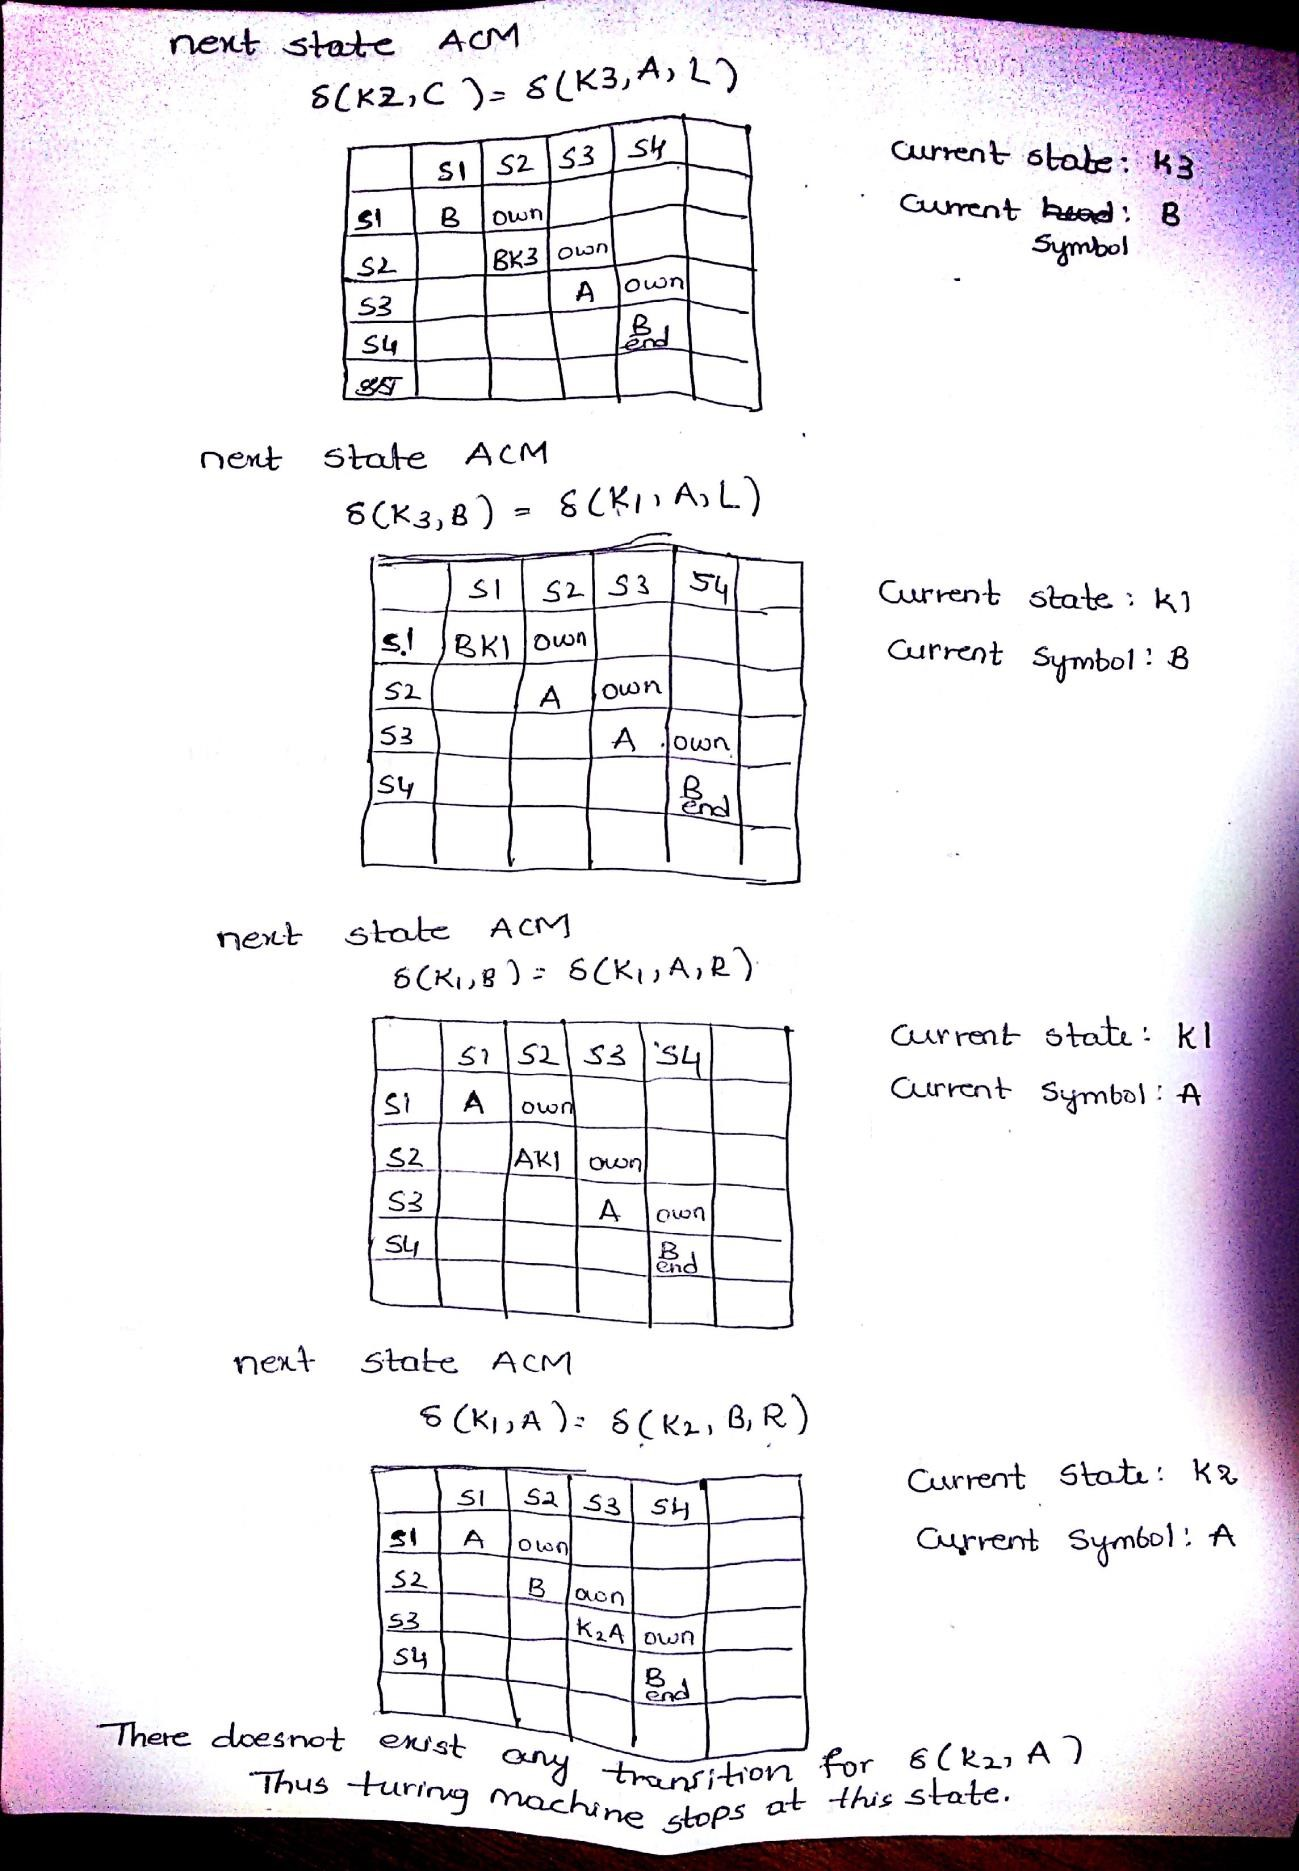 next state ACM
δ(K2,C) = δ(K3,A,L)
S1 S2 S3 S4
S1 B own
S2 BK3 own
S3 A own
S4 B end
Current state: K3
Current head: B
Symbol
next state ACM
δ(K3,B) = δ(K1,A,L)
S1 S2 S3 S4
S1 BK1 own
S2 A own
S3 A own
S4 B end
Current state: K1
Current Symbol: B
next state ACM
δ(K1,B) = δ(K1,A,R)
S1 S2 S3 S4
S1 A own
S2 AK1 own
S3 A own
S4 B end
Current state: K1
Current Symbol: A
next state ACM
δ(K1,A) = δ(K2,B,R)
S1 S2 S3 S4
S1 A own
S2 B own
S3 K2A own
S4 B end
Current State: K2
Current Symbol: A
There doesnot exist any transition for δ(K2,A)
Thus turing machine stops at this state.